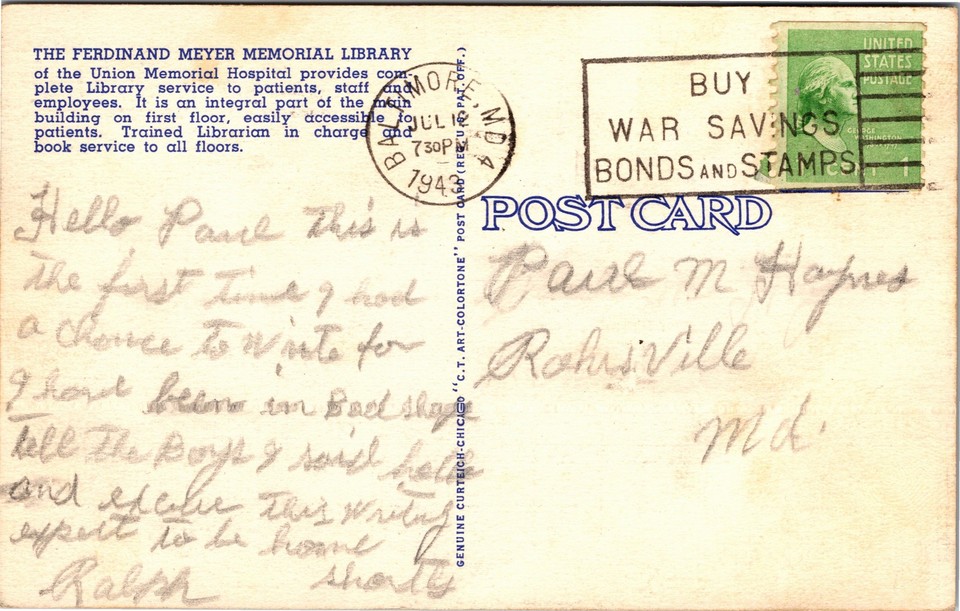 THE FERDINAND MEYER MEMORIAL LIBRARY
of the Union Memorial Hospital provides com-
plete Library service to patients, staff and
employees. It is an integral part of the main
building on first floor, easily accessible to
patients. Trained Librarian in charge and
book service to all floors.
BALTIMORE, MD 4
JUL 12
7 30 PM
1943
BUY
WAR SAVINGS
BONDS AND STAMPS
UNITED
STATES
POSTAGE
GEORGE
WASHINGTON
1
POST CARD
GENUINE CURTEICH-CHICAGO "C.T. ART-COLORTONE" POST CARD (REG. U.S. PAT. OFF.)
Hello Paul this is
the first time I had
a chance to write for
I have been in Bad shape
tell the Boys I said hello
and excuse this writing
expect to be home
shortly
Ralph
Paul M Haynes
Rohrsville
Md.